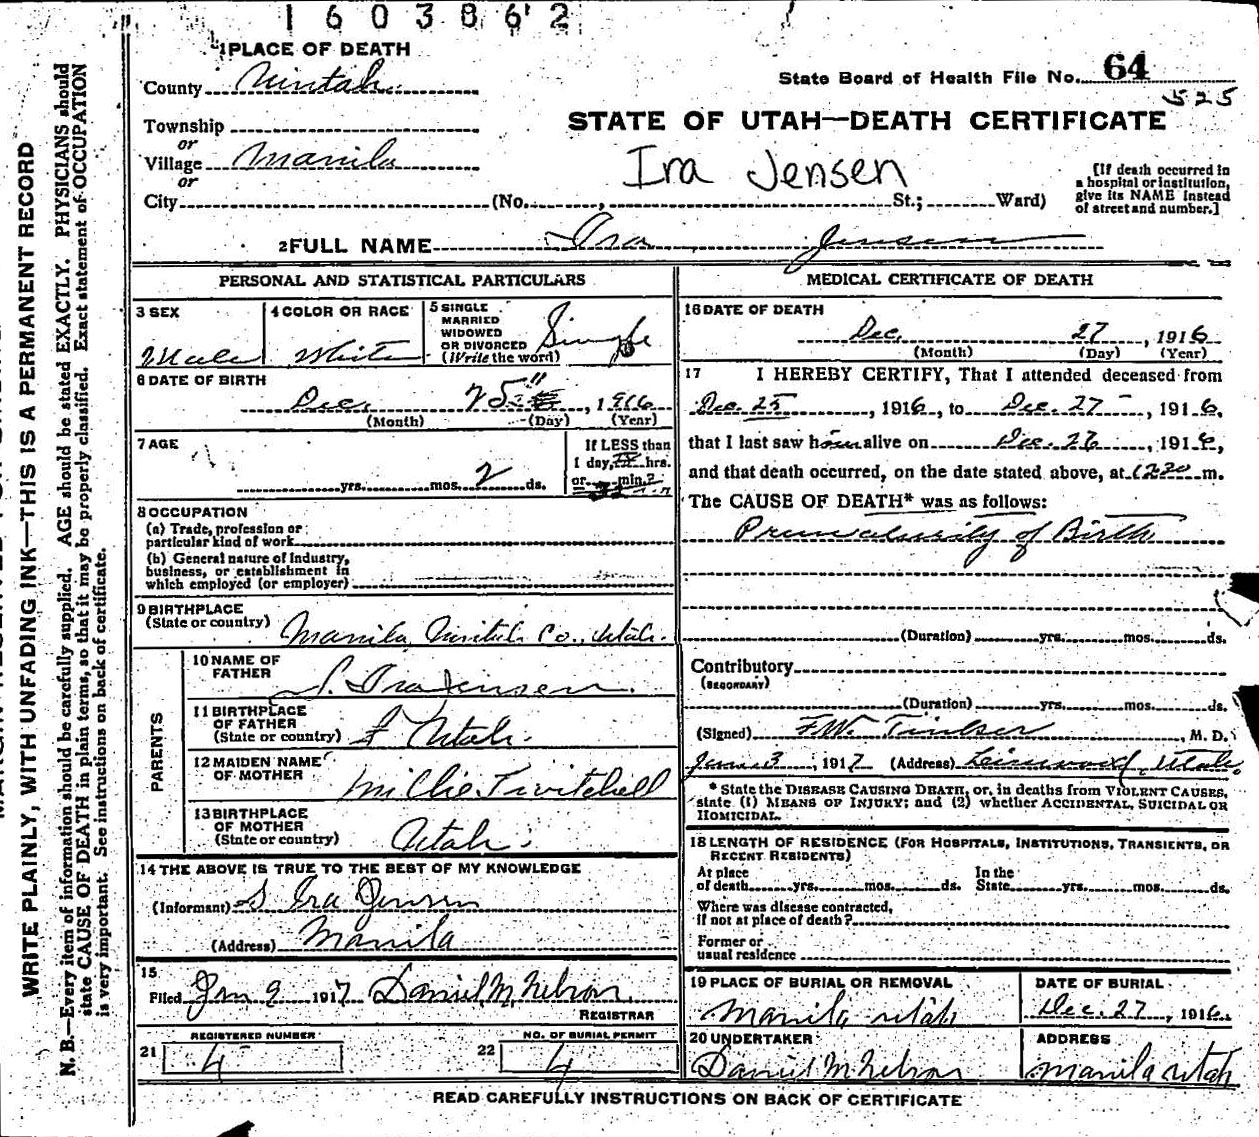 1603862
1 PLACE OF DEATH
County Uintah
State Board of Health File No. 64
525
STATE OF UTAH—DEATH CERTIFICATE
Township
or
Village Manila
or
City (No. , St.; Ward)
Ira Jensen
[If death occurred in
a hospital or institution,
give its NAME instead
of street and number.]
2 FULL NAME Ira Jensen
PERSONAL AND STATISTICAL PARTICULARS
3 SEX
Male
4 COLOR OR RACE
White
5 SINGLE
MARRIED
WIDOWED
OR DIVORCED
(Write the word)
Single
6 DATE OF BIRTH
Dec. 25 , 1916
(Month) (Day) (Year)
7 AGE
yrs. mos. 2 ds.
If LESS than
1 day, hrs.
or min.?
8 OCCUPATION
(a) Trade, profession or
particular kind of work
(b) General nature of Industry,
business, or establishment in
which employed (or employer)
9 BIRTHPLACE
(State or country)
Manila, Uintah Co., Utah.
PARENTS
10 NAME OF
FATHER
S. Ira Jensen.
11 BIRTHPLACE
OF FATHER
(State or country) Utah.
12 MAIDEN NAME
OF MOTHER
Millie Twitchell
13 BIRTHPLACE
OF MOTHER
(State or country)
Utah.
14 THE ABOVE IS TRUE TO THE BEST OF MY KNOWLEDGE
(Informant) S Ira Jensen
(Address) Manila
15
Filed Jan 9 1917 Daniel M. Nelson
REGISTRAR
REGISTERED NUMBER
21 4
NO. OF BURIAL PERMIT
22 4
MEDICAL CERTIFICATE OF DEATH
16 DATE OF DEATH
Dec. 27 , 1916
(Month) (Day) (Year)
17 I HEREBY CERTIFY, That I attended deceased from
Dec. 25 , 1916, to Dec. 27 , 1916,
that I last saw him alive on Dec. 26 , 1916,
and that death occurred, on the date stated above, at m.
The CAUSE OF DEATH* was as follows:
Prematurity of Birth
(Duration) yrs. mos. ds.
Contributory
(SECONDARY)
(Duration) yrs. mos. ds.
(Signed) F.W. , M. D.
Jan 3 , 1917 (Address) Linwood, Utah.
* State the DISEASE CAUSING DEATH, or, in deaths from VIOLENT CAUSES,
state (1) MEANS OF INJURY; and (2) whether ACCIDENTAL, SUICIDAL OR
HOMICIDAL.
18 LENGTH OF RESIDENCE (FOR HOSPITALS, INSTITUTIONS, TRANSIENTS, OR
RECENT RESIDENTS)
At place In the
of death yrs. mos. ds. State yrs. mos. ds.
Where was disease contracted,
if not at place of death?
Former or
usual residence
19 PLACE OF BURIAL OR REMOVAL
Manila Utah
DATE OF BURIAL
Dec. 27 , 1916
20 UNDERTAKER
Daniel M Nelson
ADDRESS
Manila Utah
READ CAREFULLY INSTRUCTIONS ON BACK OF CERTIFICATE
WRITE PLAINLY, WITH UNFADING INK—THIS IS A PERMANENT RECORD
N. B.—Every item of information should be carefully supplied. AGE should be stated EXACTLY. PHYSICIANS should
state CAUSE OF DEATH in plain terms, so that it may be properly classified. Exact statement of OCCUPATION
is very important. See instructions on back of certificate.